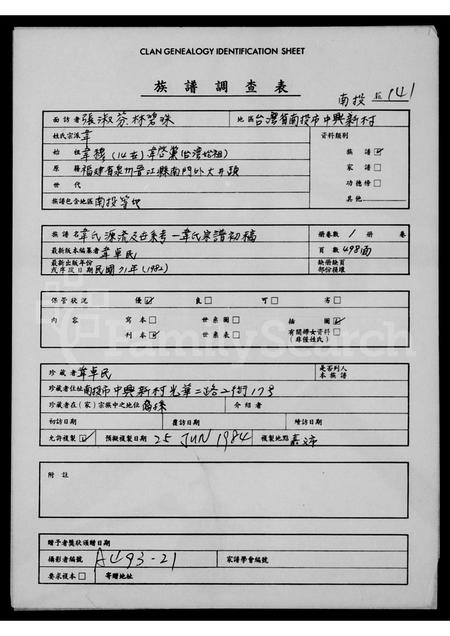 CLAN GENEALOGY IDENTIFICATION SHEET
族譜調查表
南投 141
面訪者 張淑芬.林碧珠 地區 台灣省南投市中興新村
姓氏宗派 韋 資料類別
始祖 韋穆 (14世) 韋啓業(台灣始祖) 族譜☑
原籍 福建省泉州晉江縣南門外大井頭 家譜☐
世代 功德榜☐
族譜包含地區 南投等地 其他☐
族譜名 韋氏源流及世系考一韋氏宗譜初稿 冊卷數 1 冊 卷
最新版本編纂者 韋卓民 頁數 498面
最新出版年份或序跋日期 民國71年(1982) 缺冊缺頁部份損壞
保管狀況 優☑ 良☐ 可☐ 劣☐
內容 寫本☐ 世系圖☐ 插圖☑
刊本☑ 世系表☐ 有關婦女資料☐(非僅姓氏)
FamilySearch
珍藏者 韋卓民 是否列入本族譜
珍藏者住址 南投市中興新村光華二路二街17号
珍藏者在(家)宗族中之地位 裔孫 介紹者
初訪日期 覆訪日期 續訪日期
允許複製☑ 預擬複製日期 25 JUN 1984 複製地點 嘉市
附註
贈予者獎狀頒贈日期
攝影者編號 AU93-21 家譜學會編號
要求複本☐ 寄贈地址